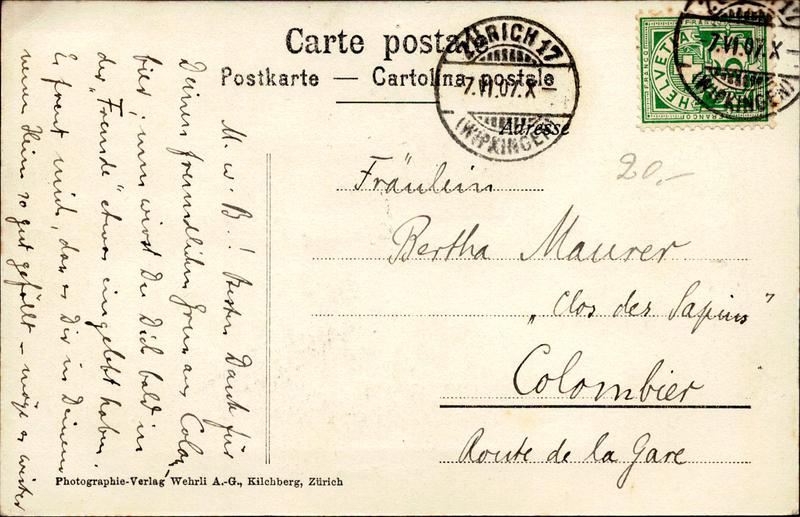 Carte postale
Postkarte — Cartolina postale
Adresse
ZÜRICH 17
7.VI.07.X
(WIPKINGEN)
FRANCO
HELVETIA
7.VI.07.X
(WIPKINGEN)
20.-
Fräulein
Bertha Maurer
„Clos des Sapins"
Colombier
Route de la Gare
M. w. B.! Besten Dank für
Deinen freundlichen Gruss aus Colom
bier; nun wirst Du Dich bald in
der „Fremde" etwas eingelebt haben.
Es freut mich, dass es Dir in Deinem
neuen Heim so gut gefällt – möge es weiter
Photographie-Verlag Wehrli A.-G., Kilchberg, Zürich